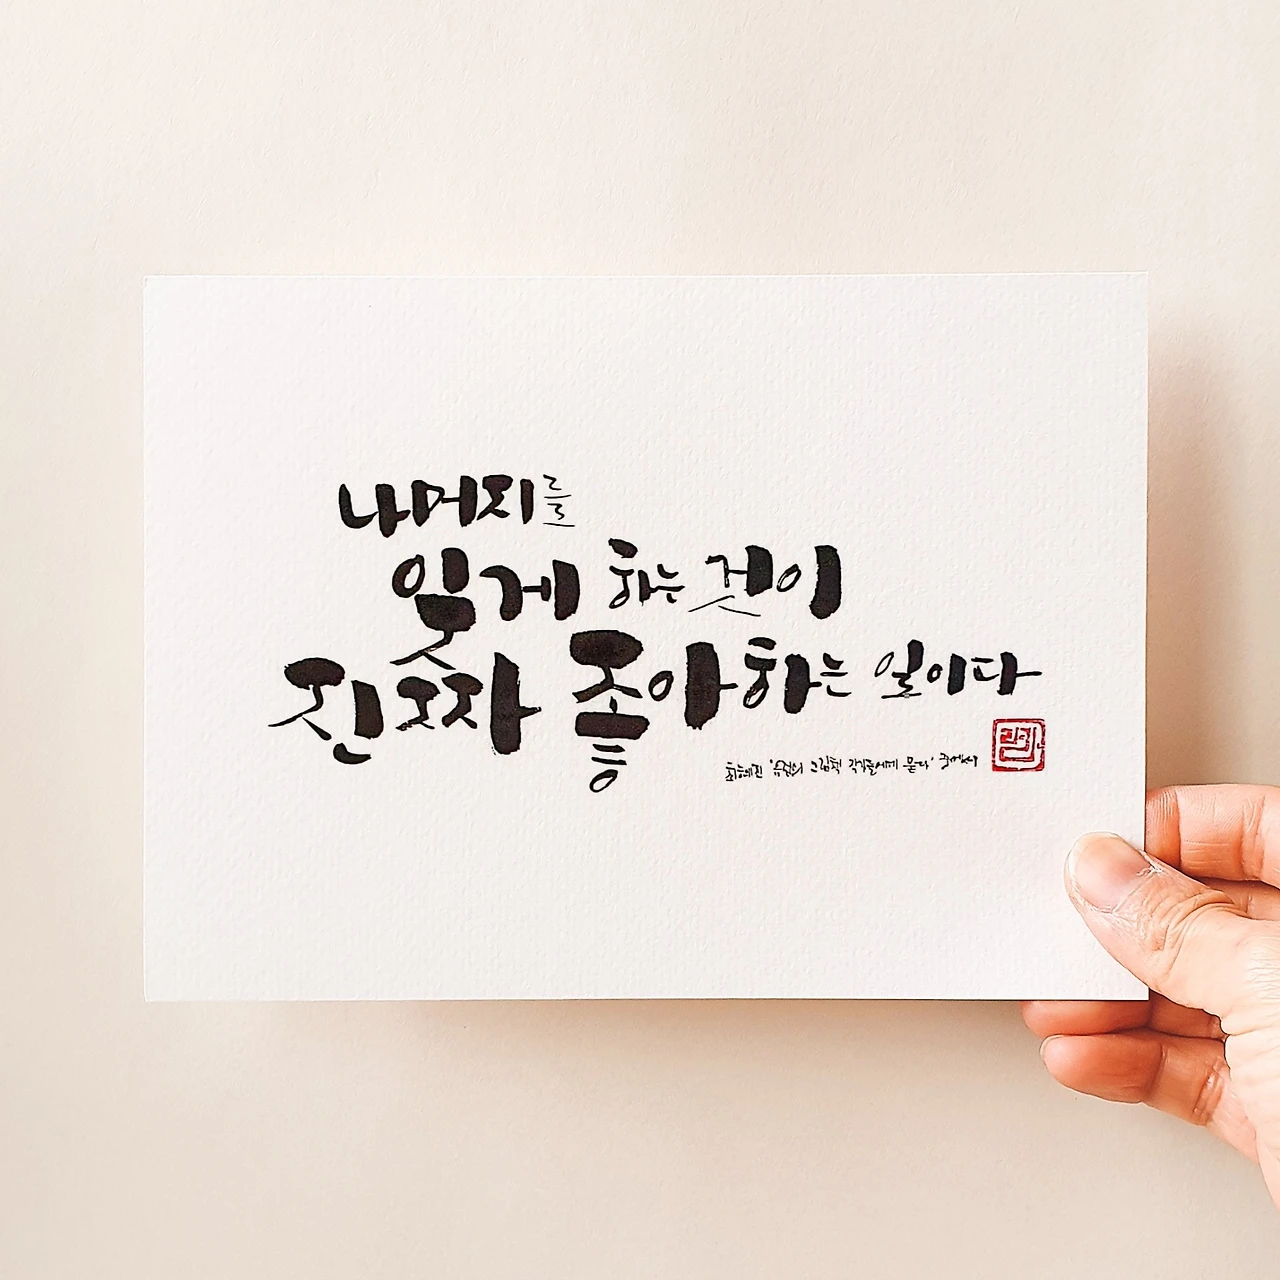 나머지를
잊게 하는 것이
진짜 좋아하는 일이다
최혜진 '유럽의 그림책 작가들에게 묻다' 중에서